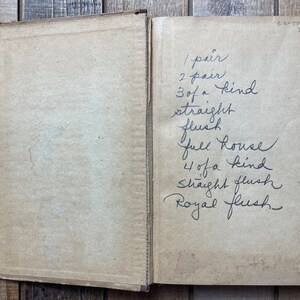 1 pair
2 pair
3 of a kind
straight
flush
full house
4 of a kind
straight flush
Royal flush